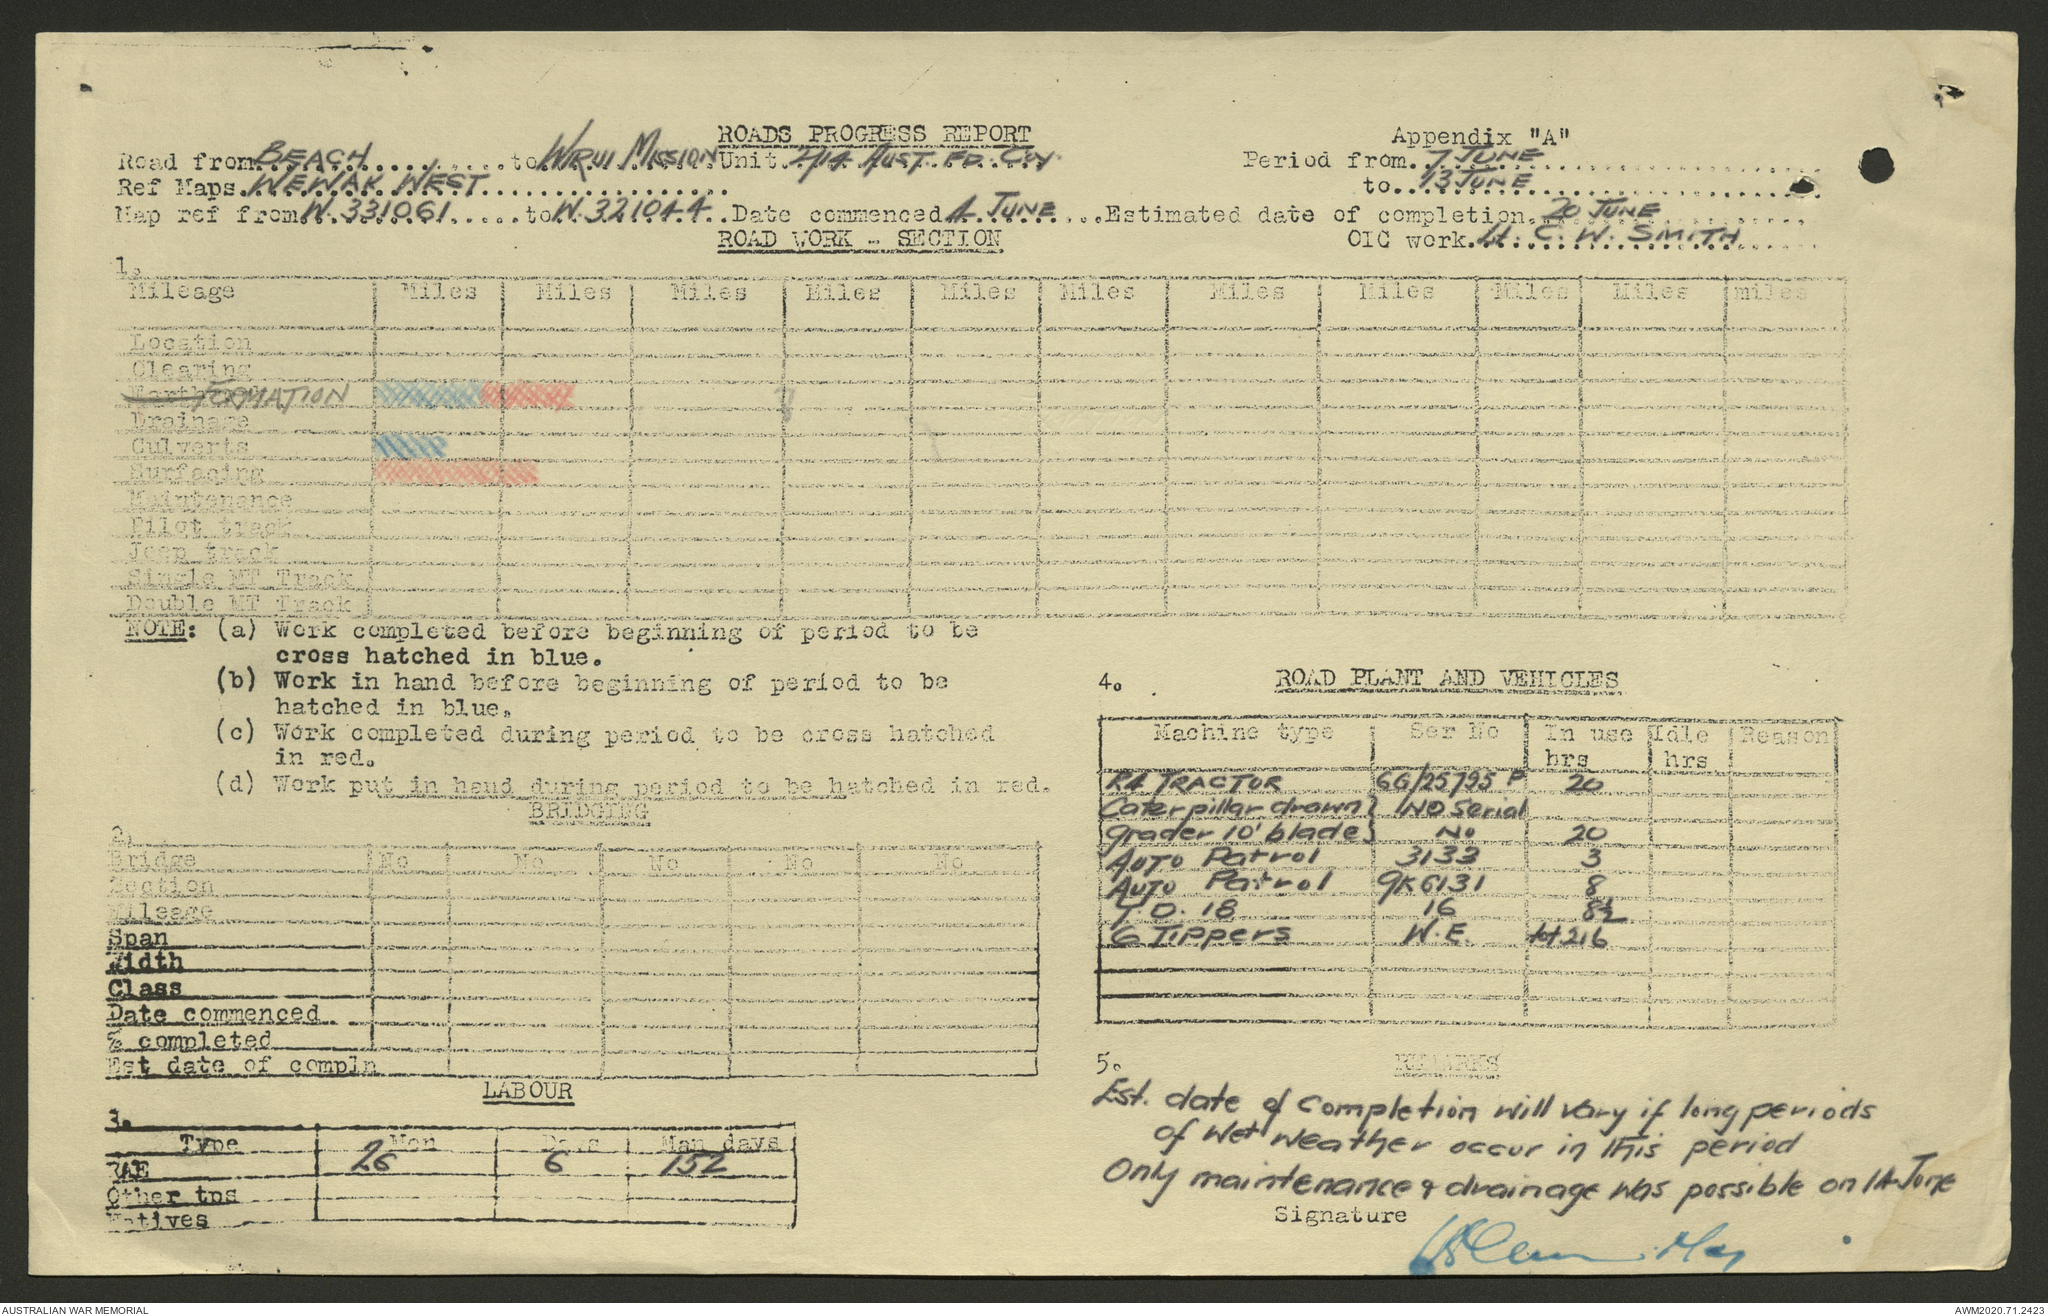 ROADS PROGRESS REPORT
Appendix "A"
Road from BEACH to WIRUI MISSION Unit 2/14 AUST. FD. COY. Period from 7 JUNE
Ref Maps WEWAK WEST to 13 JUNE
Map ref from W.331061 to W.321044 Date commenced 4 JUNE Estimated date of completion 20 JUNE
ROAD WORK - SECTION OIC work Lt. C. W. SMITH
1.
Mileage Miles Miles Miles Miles Miles Miles Miles Miles Miles Miles miles
Location
Clearing
FORMATION
Drainage
Culverts
Surfacing
Maintenance
Pilot track
Jeep track
Single MT Track
Double MT Track
NOTE: (a) Work completed before beginning of period to be
cross hatched in blue.
(b) Work in hand before beginning of period to be
hatched in blue.
(c) Work completed during period to be cross hatched
in red.
(d) Work put in hand during period to be hatched in red.
BRIDGING
2.
Bridge No No No No No
Section
Mileage
Span
Width
Class
Date commenced
% completed
Est date of compln
LABOUR
3.
Type Men Days Man days
RAE 26 6 152
Other tps
Natives
4. ROAD PLANT AND VEHICLES
Machine type Ser No In use hrs Idle hrs Reason
R4 TRACTOR 6G/25795 P 20
Caterpillar drawn } NO Serial
grader 10' blade } No 20
AUTO Patrol 3133 3
AUTO Patrol 9K6131 8
T.D. 18 16 8½
6 Tippers W.E. tot 216
5. REMARKS
Est. date of completion will vary if long periods
of wet weather occur in this period
Only maintenance & drainage was possible on 14 June
Signature
AUSTRALIAN WAR MEMORIAL
AWM2020.71.2423